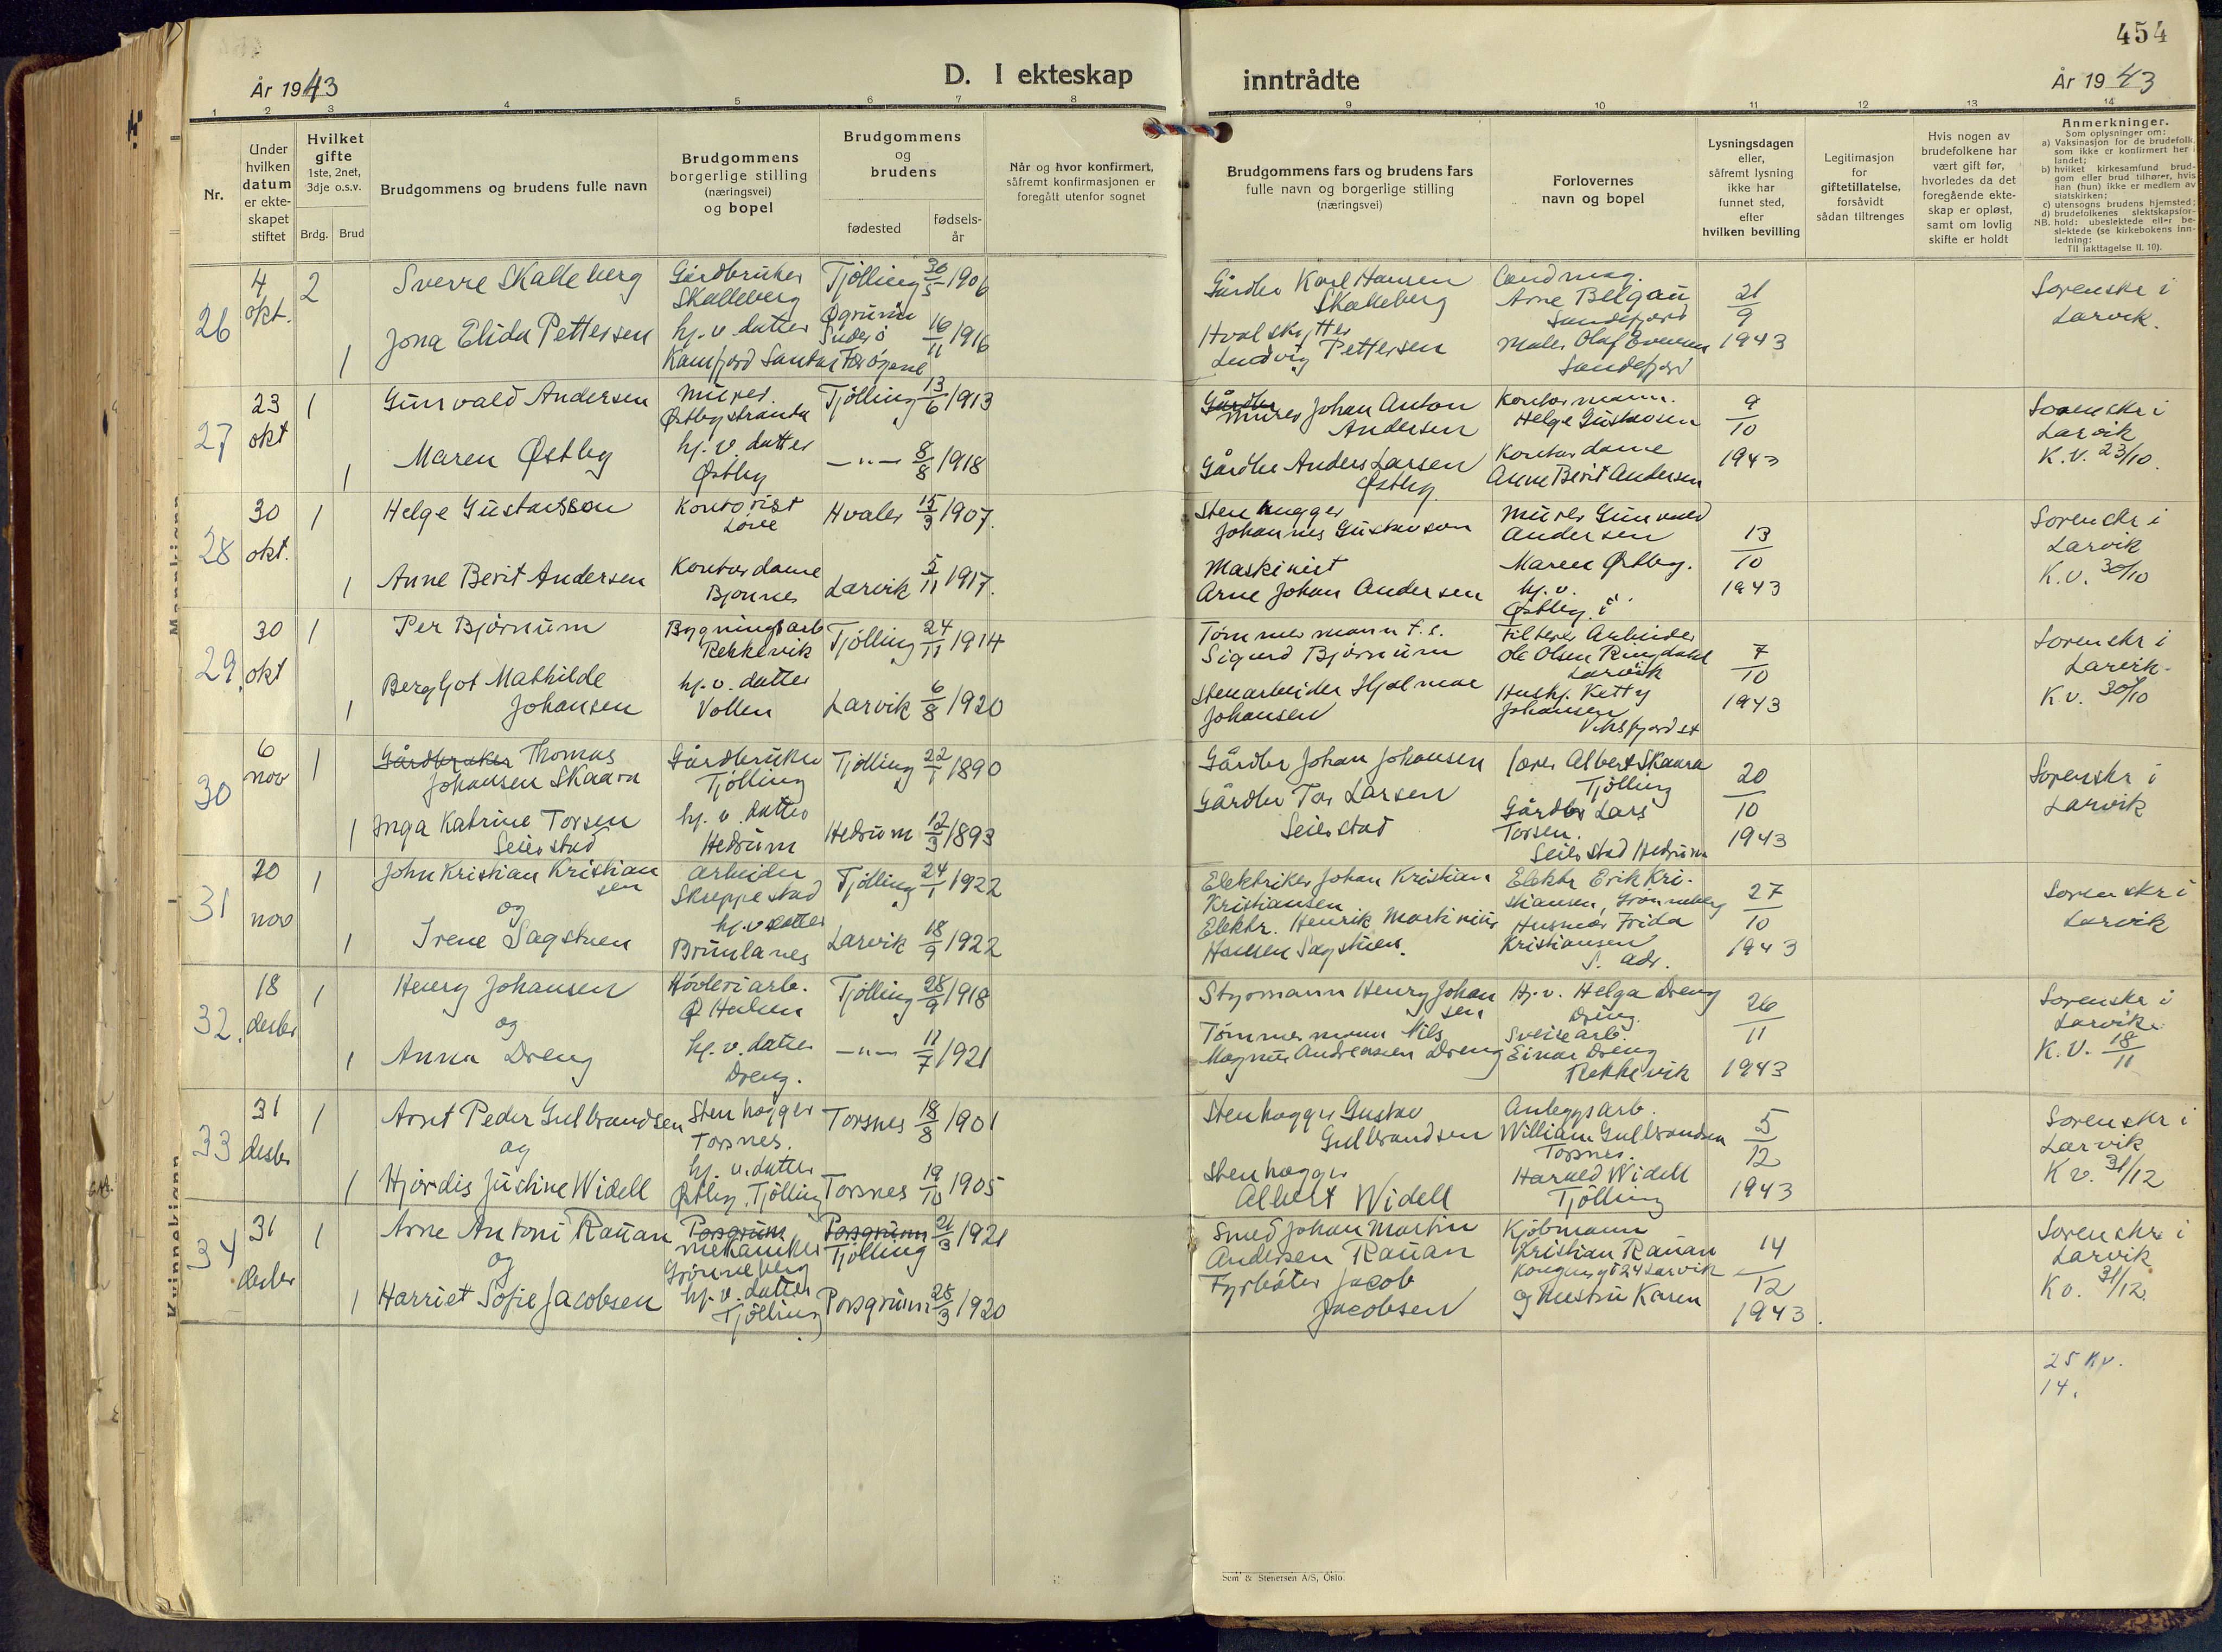 454
År 1943
D. I ekteskap inntrådte
År 1943
1 2 3 4 5 6 7 8 9 10 11 12 13 14
Nr.
Under
hvilken
datum
er ekte-
skapet
stiftet
Hvilket
gifte
1ste, 2net,
3dje o.s.v.
Brdg. Brud
Brudgommens og brudens fulle navn
Brudgommens
borgerlige stilling
(næringsvei)
og bopel
Brudgommens
og
brudens
fødested
fødsels-
år
Når og hvor konfirmert,
såfremt konfirmasjonen er
foregått utenfor sognet
Brudgommens fars og brudens fars
fulle navn og borgerlige stilling
(næringsvei)
Forlovernes
navn og bopel
Lysningsdagen
eller,
såfremt lysning
ikke har
funnet sted,
efter
hvilken bevilling
Legitimasjon
for
giftetillatelse,
forsåvidt
sådan tiltrenges
Hvis nogen av
brudefolkene har
vært gift før,
hvorledes da det
foregående ekte-
skap er opløst,
samt om lovlig
skifte er holdt
Anmerkninger.
Som oplysninger om:
a) Vaksinasjon for de brudefolk,
som ikke er konfirmert her i
landet;
b) hvilket kirkesamfund brud-
gom eller brud tilhører, hvis
han (hun) ikke er medlem av
statskirken;
c) utensogns brudens hjemsted;
d) brudefolkenes slektskapsfor-
NB. hold: ubeslektede eller be-
slektede (se kirkebokens Inn-
ledning:
Til iakttagelse II. 10).
26
4
okt.
2
Sverre Skalleberg
Gårdbruker
Skalleberg
Tjølling 30/5 1906
1
Jona Elida Pettersen
hj. v. datter
Kamfjord Sandar
Suderö
Færöyene
16/11 1916
Gårdbr Karl Hansen
Skalleberg
Hvalskytter
Ludvig Pettersen
Cand mag.
Arne Belgau
Sandefjord
Maler Olaf
Sandefjord
21/9
1943
Sorenskr i
Larvik.
27
23
okt
1
Gunvald Andersen
Murer.
Østbystranda
Tjølling 13/6 1913
1
Maren Østby
hj. v. datter
Østby
—"— 8/8 1918
Gårdbr
Murer Johan Anton
Andersen
Gårdbr Anders Larsen
Østby
Kontormann.
Helge Gustavsen
Kontordame
Anne Berit Andersen
9/10
1943
Sorenskr i
Larvik
K.V. 23/10.
28
30
okt.
1
Helge Gustavsson
Kontorist
Løve
Hvaler 15/3 1907.
1
Anne Berit Andersen
Kontordame
Bjønnes
Larvik 5/11 1917.
Stenhugger
Johannes Gustavson
Maskinist
Arne Johan Andersen
Murer Gunvald
Andersen
Maren Østby.
hj. v.
Østby.
13/10
1943
Sorenskr i
Larvik
K.V. 30/10
29.
30
okt
1
Per Bjørnum
Bygningsarb
Rekkevik
Tjølling 24/11 1914
1
Bergljot Mathilde
Johansen
hj. v. datter
Vollen
Larvik 6/8 1920
Tømmermann f. s.
Sigurd Bjørnum
Stenarbeider Hjalmar
Johansen
Filterer Arbeider
Ole Olsen Ringdahl
Larvik
Hushj. Ketty
Johansen
Viksfjord st
7/10
1943
Sorenskr i
Larvik.
K.V. 30/10
30
6
nov
1
Gårdbruker Thomas
Johansen Skaara
Gårdbruker
Tjølling
Tjølling 22/1 1890
1
Inga Katrine Torsen
Seierstad
hj. v. datter
Hedrum
Hedrum 12/3 1893
Gårdbr Johan Johansen
Gårdbr Tor Larsen
Seierstad
Lærer Albert Skaara
Tjølling
Gårdbr Lars
Torsen.
Seierstad Hedrum
20/10
1943
Sorenskr i
Larvik
31
20
nov
1
John Kristian Kristian
sen
og
arbeider
Skreppestad
Tjølling 24/1 1922
1
Irene Sagstuen
hj. v datter
Brunlanes
Larvik 18/9 1922
Elektriker Johan Kristian
Kristiansen
Elektr. Henrik Martinius
Hansen Sagstuen.
Elektr Erik Kri-
stiansen, Grønneberg
Husmor Frida
Kristiansen
S. adr.
27/10
1943
Sorenskr i
Larvik
32.
18
desbr
1
Henry Johansen
og
Høvleriarb.
Ø Halsen
Tjølling 28/9 1918
1
Anna Dreng
hj. v. datter
Dreng.
—"— 11/7 1921
Styrmann Henry Johan
sen
Tømmermann Nils
Magnus Andreassen Dreng
Hj. v. Helga Dreng
Dreng.
Sveisearb.
Einar Dreng
Rekkevik
26/11
1943
Sorenskr i
Larvik
K.V. 18/11
33
31
desbr
1
Arnt Peder Gulbrandsen
og
Stenhogger
Torsnes.
Torsnes 18/8 1901
1
Hjørdis Justine Widell
hj. v. datter
Østby, Tjølling
Torsnes 19/10 1905
Stenhogger Gustav
Gulbrandsen
Stenhogger
Albert Widell
Anleggsarb.
William Gulbrandsen
Torsnes.
Harald Widell
Tjølling
5/12
1943
Sorenskr i
Larvik
K v. 31/12
34
31
desbr
1
Arne Antoni Rauan
og
Porsgrunn
mekaniker
Grønneberg
Porsgrunn
Tjølling
21/3 1921
1
Harriet Sofie Jacobsen
hj. v. datter
Tjølling
Porsgrunn 28/3 1920
Smed Johan Martin
Andersen Rauan
Fyrbøter Jacob
Jacobsen
Kjøbmann
Kristian Rauan
Kongensgt 24 Larvik
og hustru Karen
14/12
1943.
Sorenskr i
Larvik
K v. 31/12.
25 Kv.
14.
Mannkjønn
Kvinnekjønn
Sem & Stenersen A/S, Oslo.